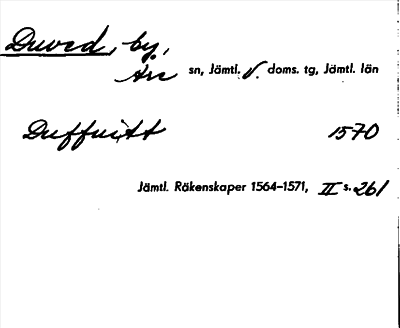 Duved, by,
Åre sn, Jämtl. v. doms. tg, Jämtl. län
Duffuitt 1570
Jämtl. Räkenskaper 1564-1571, II s. 261